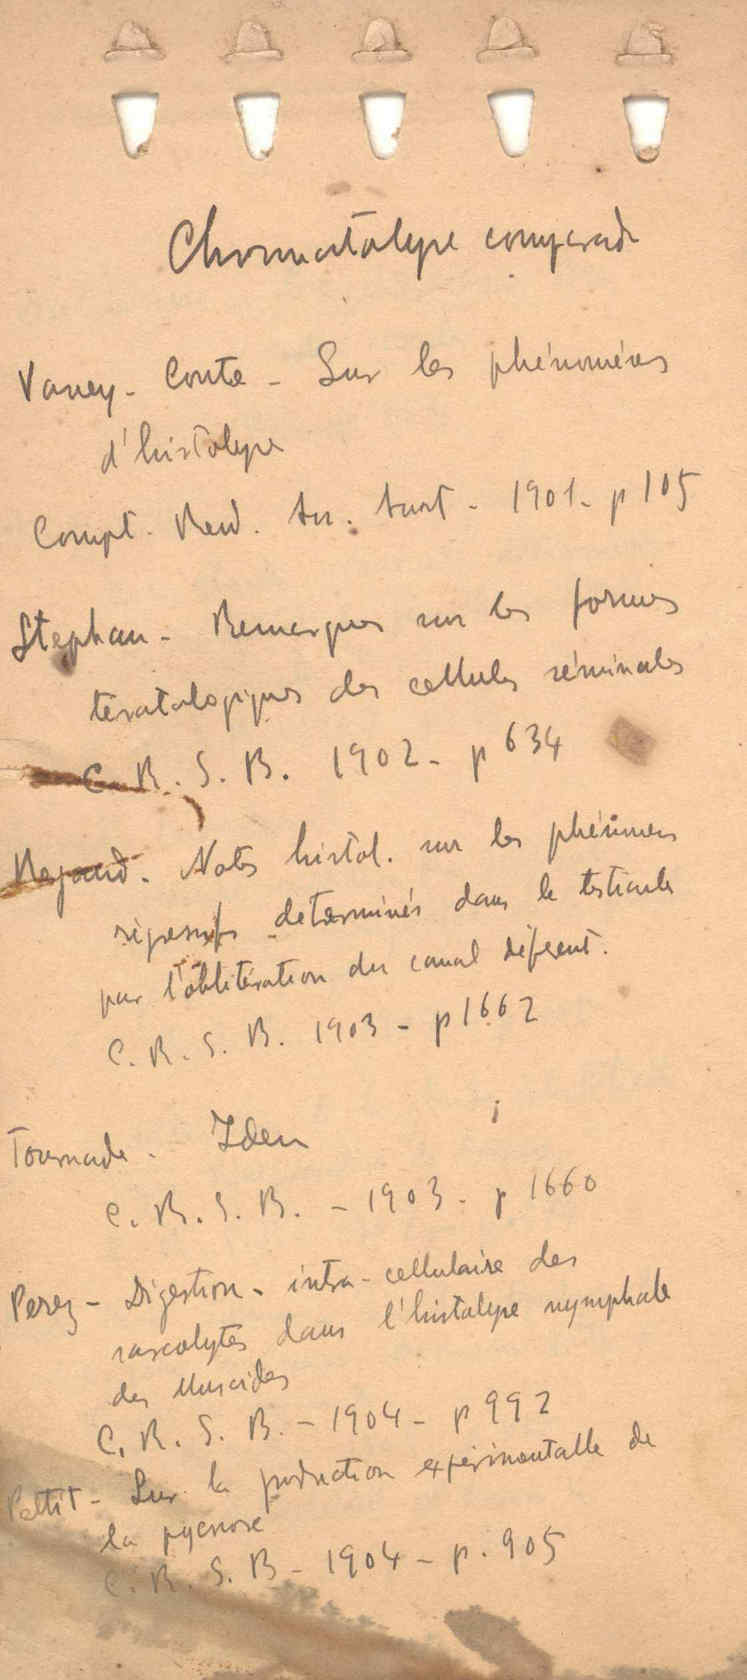 Chromatolyse comparade
Vaney - Conte - Sur les phénomènes
d'histolyse
Compt. Rend. 1901 - p 105
Stephan - Remarques sur les formes
tératologiques des cellules séminales
C. R. S. B. 1902 - p 634
Regaud - Notes histol. sur les phénomènes
régressifs déterminés dans le testicule
par l'oblitération du canal déférent.
C. R. S. B. 1903 - p 1662
Tournade - Iden
C. R. S. B. - 1903 - p 1660
Perez - Digestion - intra-cellulaire des
sarcolytes dans l'histolyse nymphale
des Muscides
C. R. S. B. - 1904 - p 992
Pettit - Sur la production expérimentalle de
la pycnose
C. R. S. B - 1904 - p. 905